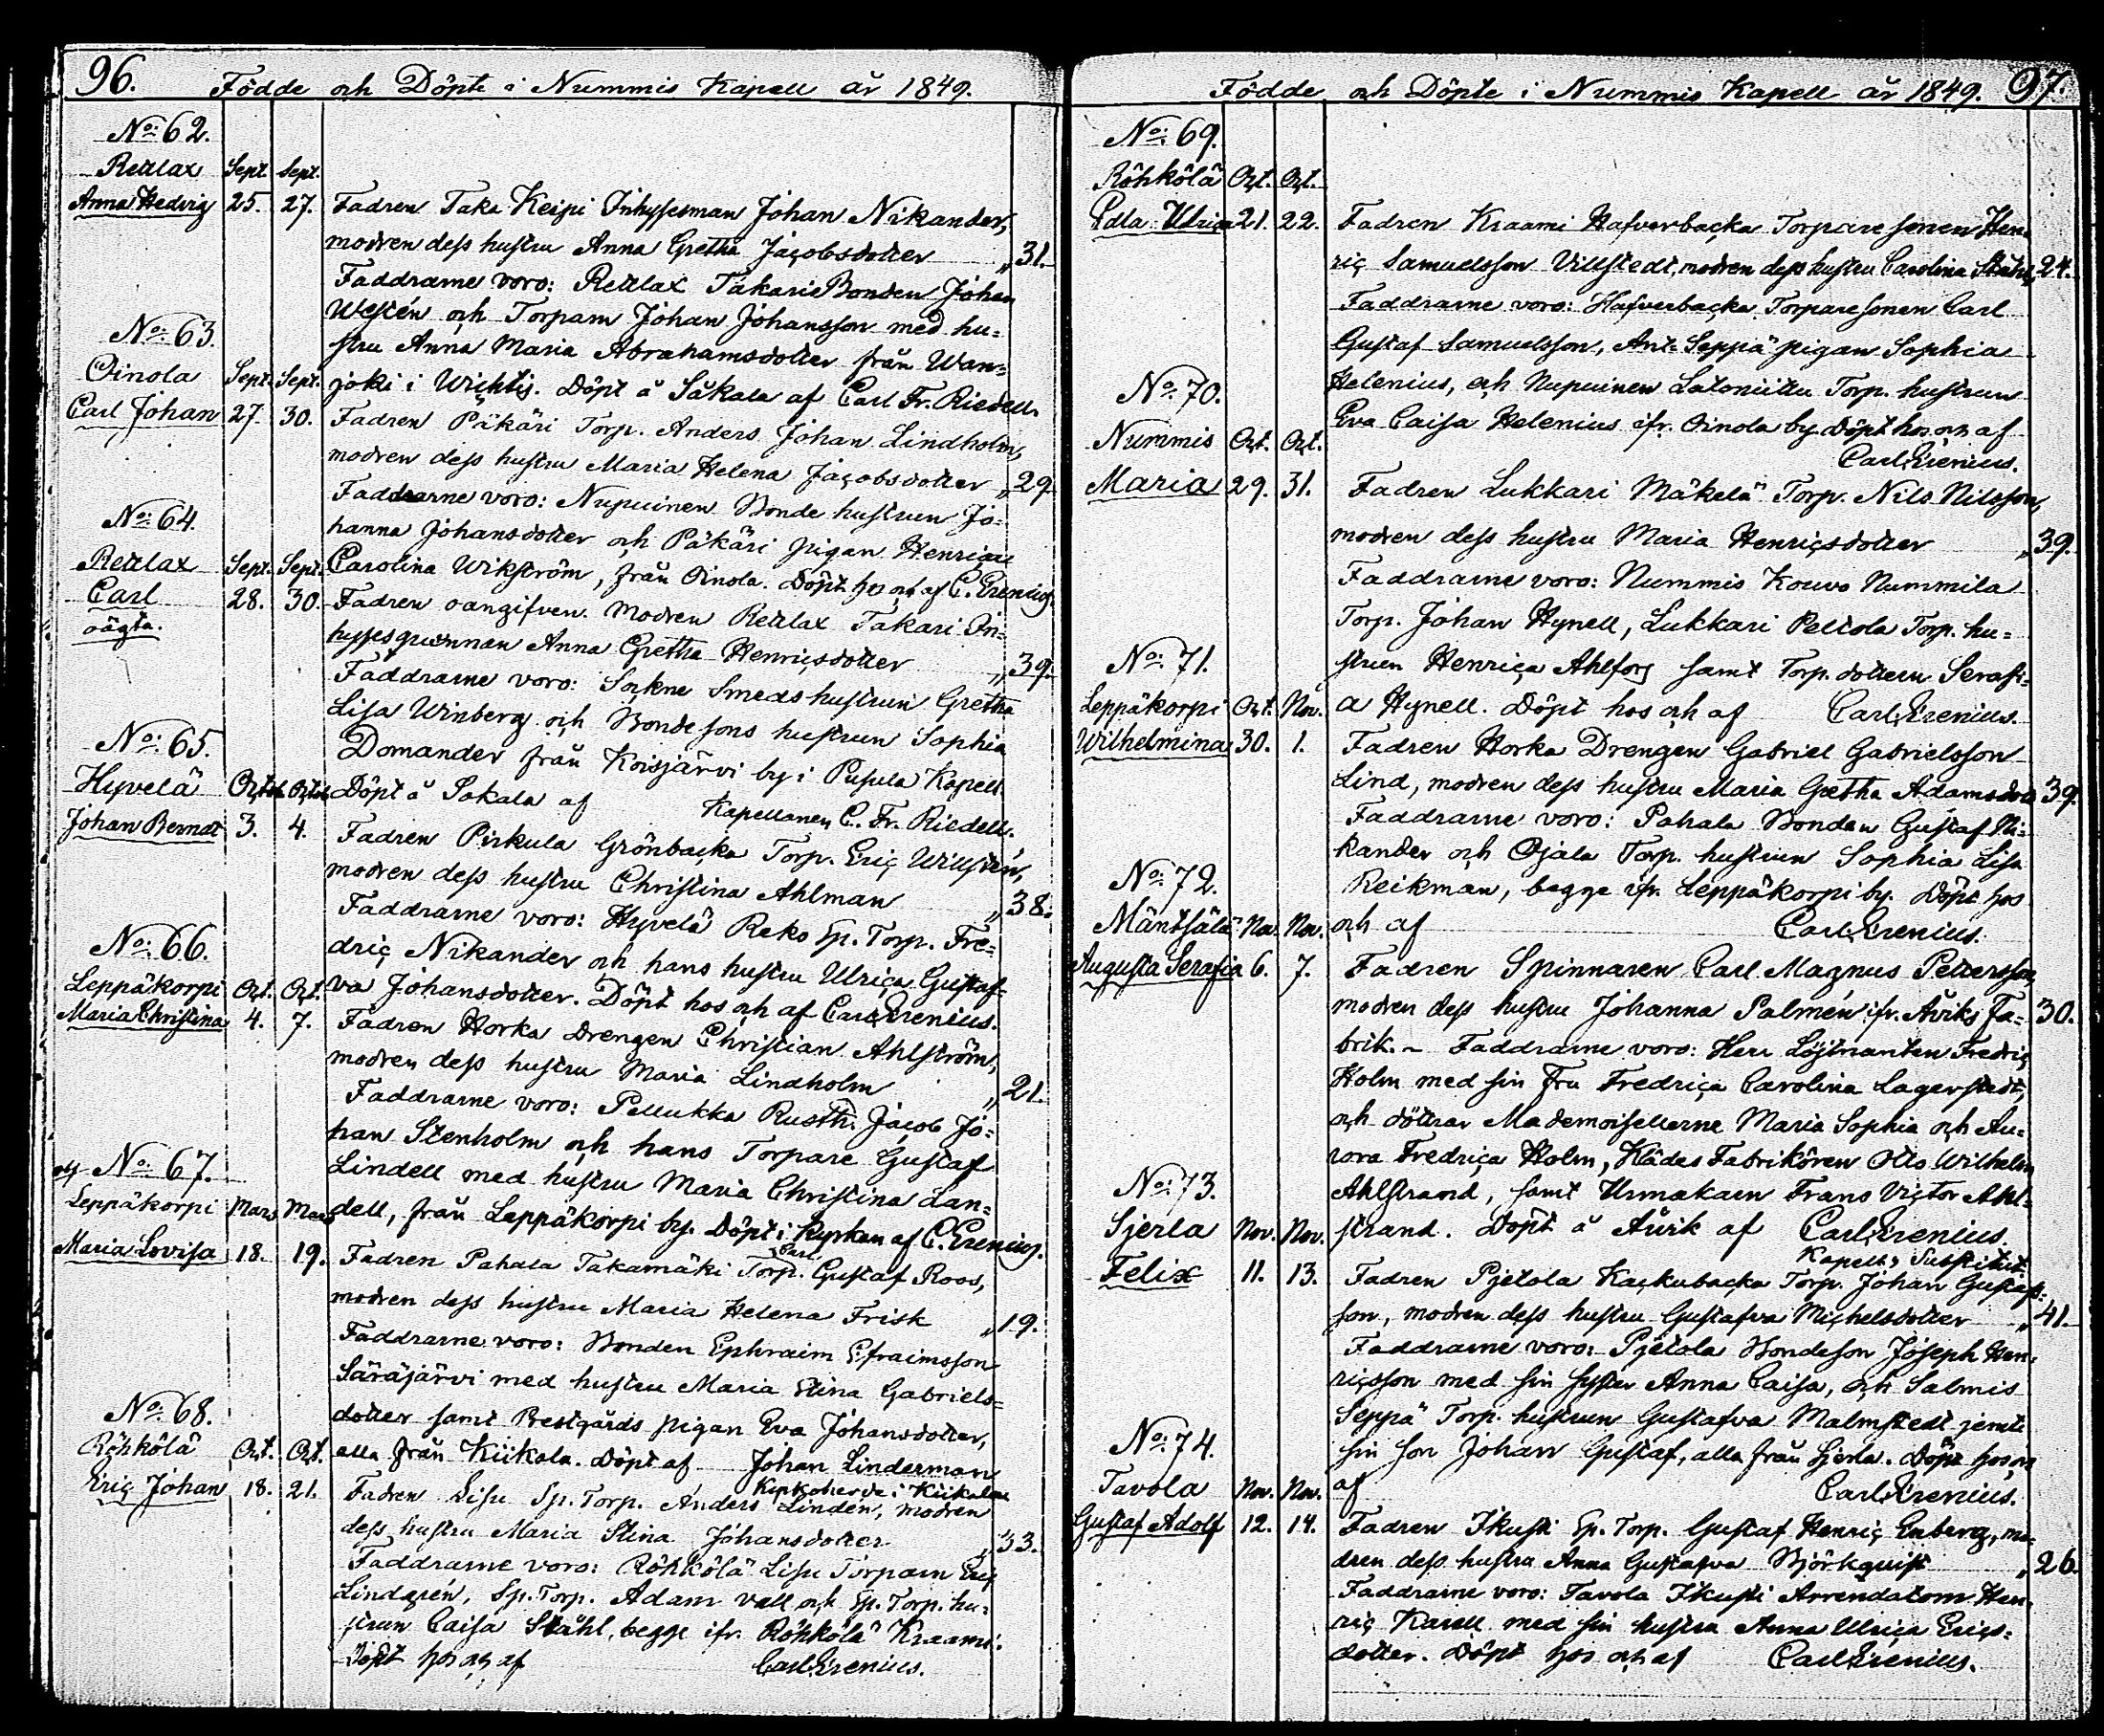 96. Födde och Döpte i Nummis Kapell år 1849.
No: 62.
Retlax Sept. Sept.
Anna Hedvig 25. 27. Fadren Taka Keipi Inhysesman Johan Nikander,
modren dess hustru Anna Gretha Jacobsdotter „ 31.
Faddrarne voro: Retlax Takari Bonden Johan
Westén och Torparn Johan Johansson med hu=
stru Anna Maria Abrahamsdotter från Wan=
joki i Wichtis. Döpt å Säkala af Carl Fr. Riedell.
No: 63.
Oinola Sept. Sept.
Carl Johan 27. 30. Fadren Päkäri Torp. Anders Johan Lindholm,
modren dess hustru Maria Helena Jacobsdotter „ 29.
Faddrarne voro: Nupuinen Bonde hustrun Jo=
hanna Johansdotter och Päkäri pigan Henrica
Carolina Wikström, från Oinola. Döpt hos och af C. Erenius.
No: 64.
Retlax Sept. Sept.
Carl 28. 30. Fadren oangifven. Modren Retlax Takari In=
oägta. hysesqvinnan Anna Gretha Henricsdotter „ 39.
Faddrarne voro: Sockne Smeds hustrun Gretha
Lisa Winberg och Bondesons hustrun Sophia
Domander från Koisjärvi by i Pusula Kapell.
Döpt å Sakala af Kapellanen C. Fr. Riedell.
No: 65.
Hyvelä Octob. Octob.
Johan Bernat 3. 4. Fadren Pirkula Grönbacka Torp. Eric Willstén,
modren dess hustru Christina Ahlman „ 38.
Faddrarne voro: Hyvelä Reko Sp. Torp. Fre=
dric Nikander och hans hustru Ulrica Gustaf=
va Johansdotter. Döpt hos och af Carl Erenius.
No: 66.
Leppäkorpi Oct. Oct.
Maria Christina 4. 7. Fadren Horka Drengen Christian Ahlström,
modren dess hustru Maria Lindholm „ 21.
Faddrarne voro: Pellukka Rusth. Jacob Jo=
han Stenholm och hans Torpare Gustaf
Lindell med hustru Maria Christina Lan=
dell, från Leppäkorpi by. Döpt i Kyrkan af C. Erenius.
No: 67.
Leppäkorpi Mars Mars
Maria Lovisa 18. 19. Fadren Pahala Takamäki Torp. Carl Gustaf Roos,
modren dess hustru Maria Helena Frisk „ 19.
Faddrarne voro: Bonden Ephraim Efraimsson
Säräjärvi med hustru Maria Stina Gabriels=
dotter samt Prestgårds pigan Eva Johansdotter,
alla från Kiikala. Döpt af Johan Linderman
Kyrkoherde i Kiikala
No: 68.
Röhkölä Oct. Oct.
Eric Johan 18. 21. Fadren Lisu Sp. Torp. Anders Lindén, modren
dess hustru Maria Stina Johansdotter „ 33.
Faddrarne voro: Röhkölä Lisu Torparn Eric
Lindgrén, Sp. Torp. Adam Vall och Sp. Torp. hu=
strun Caisa Ståhl, begge ifr. Röhkölä Kraami.
Döpt hos och af Carl Erenius.
Födde och Döpte i Nummis Kapell år 1849. 97.
No: 69.
Röhkölä Oct. Oct.
Edla Ulrica 21. 22. Fadren Kraami Hafverbacka Torpare sonen Hen=
ric Samuelsson Villstedt, modren dess hustru Carolina Ståhl „ 24.
Faddrarne voro: Hafverbacka Torpare sonen Carl
Gustaf Samuelsson, Ant-Seppä pigan Sophia
Helenius, och Nupuinen Latoniittu Torp. hustrun
Eva Caisa Helenius ifr. Oinola by. Döpt hos och af
Carl Erenius.
No: 70.
Nummis Oct. Oct.
Maria 29. 31. Fadren Lukkari Mäkelä Torp. Nils Nilsson,
modren dess hustru Maria Henricsdotter „ 39.
Faddrarne voro: Nummis Kouvo Nummila
Torp. Johan Hynell, Lukkari Peltola Torp. hu=
strun Henrica Ahlfors samt Torp. dottern Serafi=
a Hynell. Döpt hos och af Carl Erenius.
No: 71.
Leppäkorpi Oct. Nov.
Wilhelmina 30. 1. Fadren Horka Drengen Gabriel Gabrielsson
Lind, modren dess hustru Maria Gretha Adamsdott. 39.
Faddrarne voro: Pahala Bonden Gustaf Ni=
kander och Ojala Torp. hustrun Sophia Lisa
Reikman, begge ifr. Leppäkorpi by. Döpt hos
och af Carl Erenius.
No: 72.
Mäntsälä Nov. Nov.
Augusta Serafia 6. 7. Fadren Spinnaren Carl Magnus Pettersson,
modren dess hustru Johanna Palmén ifr. Åviks Fa= 30.
brik. – Faddrarne voro: Herr Löjtnanten Fredric
Holm med sin Fru Fredrica Carolina Lagerstedt,
och döttrar Mademoisellerne Maria Sophia och Au=
rora Fredrica Holm, Klädes Fabrikören Otto Wilhelm
Ahlstrand, samt Urmakarn Frans Victor Ahl=
strand. Döpt å Åvik af Carl Erenius.
Kapells Substitut
No: 73.
Sjerla Nov. Nov.
Felix 11. 13. Fadren Pjetola Kackubacka Torp. Johan Gustafs=
son, modren dess hustru Gustafva Michelsdotter „ 41.
Faddrarne voro: Pjetola Bondeson Joseph Hen=
ricsson med sin syster Anna Caisa, och Salmis
Seppä Torp. hustrun Gustafva Malmstedt jemte
sin son Johan Gustaf, alla från Sjerla. Döpt hos och
af Carl Erenius.
No: 74.
Tavola Nov. Nov.
Gustaf Adolf 12. 14. Fadren Ikusti Sp. Torp. Gustaf Henric Enberg, mo=
dren dess hustru Anna Gustafva Björkquist „ 26.
Faddrarne voro: Tavola Ikusti Arrendatorn Hen=
ric Karell med sin hustru Anna Ulrica Erics=
dotter. Döpt hos och af Carl Erenius.